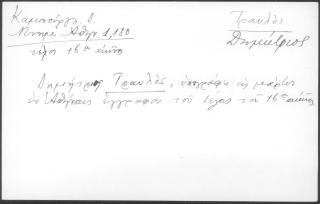 Καμπούρογλ. Δ.
Μνημ. Αθην. 1,180
τέλος 16ου αιώνα
Τραυλός
Δημήτριος
Δημήτριος Τραυλός, υπογράφει ως μάρτυς
εν Αθήναις έγγραφον του τέλους του 16ου αιώνος